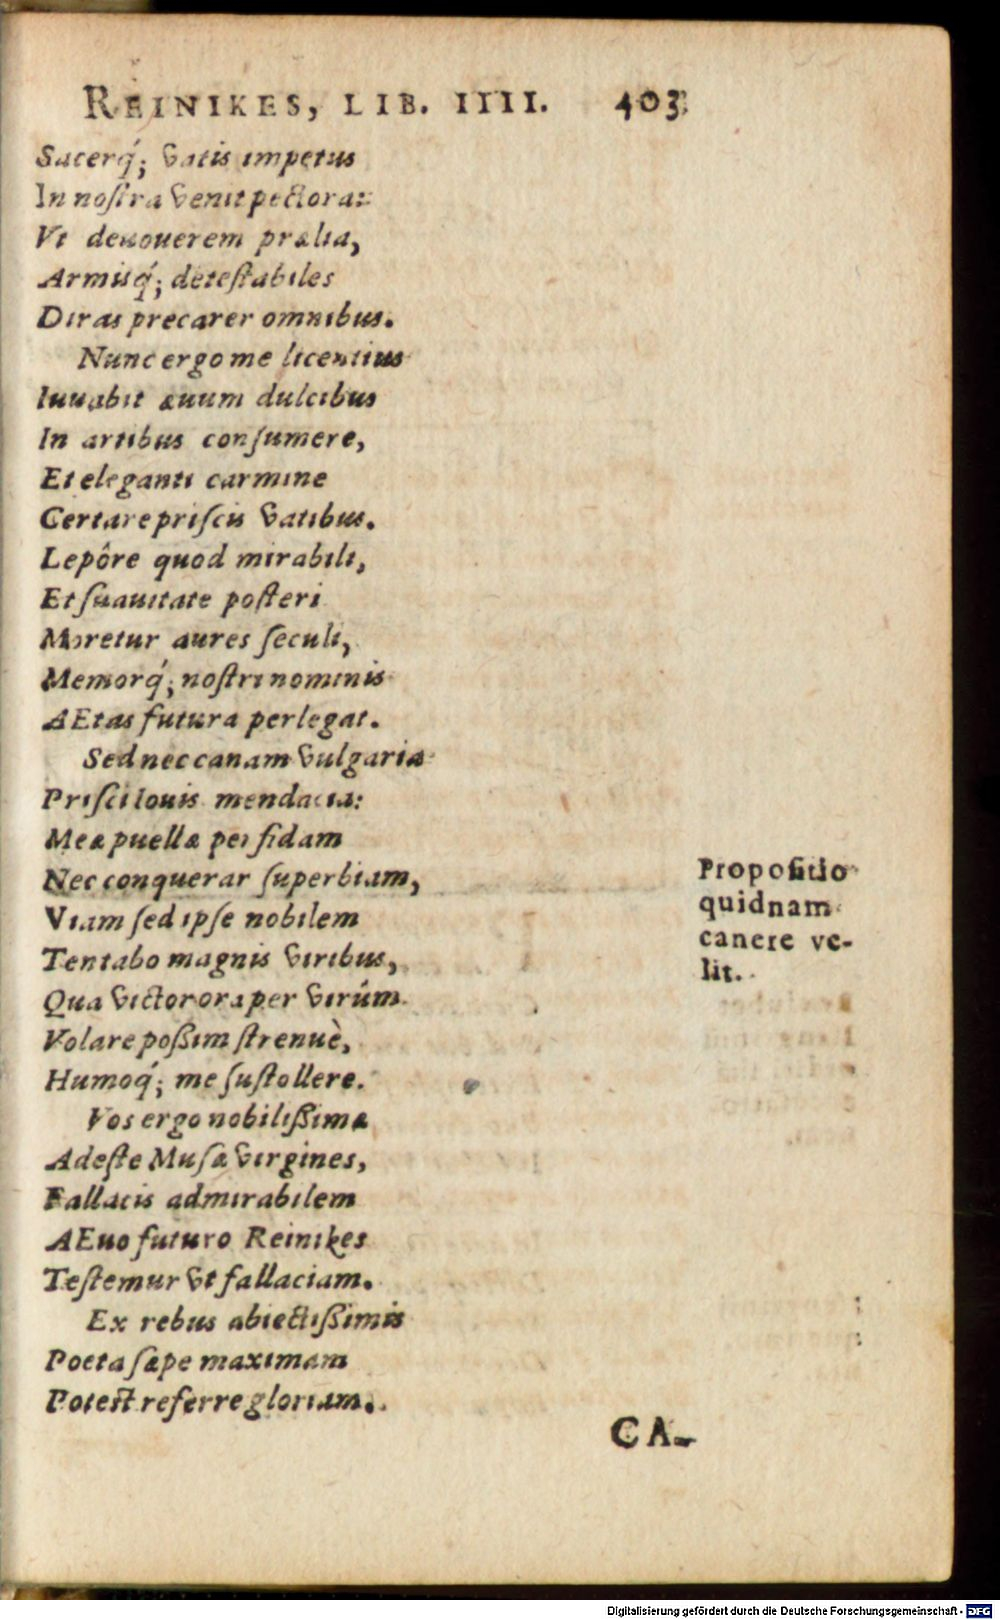 REINIKES, LIB. IIII. 403.
Sacerq́; vatis impetus
In noſtra venit pectora:
Vt deuouerem prælia,
Armisq́; deteſtabiles
Diras precarer omnibus.
Nunc ergo me licentius
Iuuabit æuum dulcibus
In artibus conſumere,
Et eleganti carmine
Certare priſcis vatibus.
Lepôre quod mirabili,
Et ſuauitate poſteri
Moretur aures ſeculi,
Memorq́; noſtri nominis
AEtas futura perlegat.
Sed nec canam vulgaria
Priſci Iouis mendacia:
Meæ puellæ perfidam
Nec conquerar ſuperbiam,
Viam ſed ipſe nobilem
Tentabo magnis viribus,
Qua victor ora per virúm
Volare poßim ſtrenuè,
Humoq́; me ſuſtollere.
Vos ergo nobilißimæ
Adeſte Muſæ virgines,
Fallacis admirabilem
AEuo futuro Reinikes
Teſtemur vt fallaciam.
Ex rebus abiectißimis
Poeta ſæpe maximam
Poteſt referre gloriam.
Propoſitio
quidnam
canere ve-
lit.
CA-
Digitalisierung gefördert durch die Deutsche Forschungsgemeinschaft - DFG